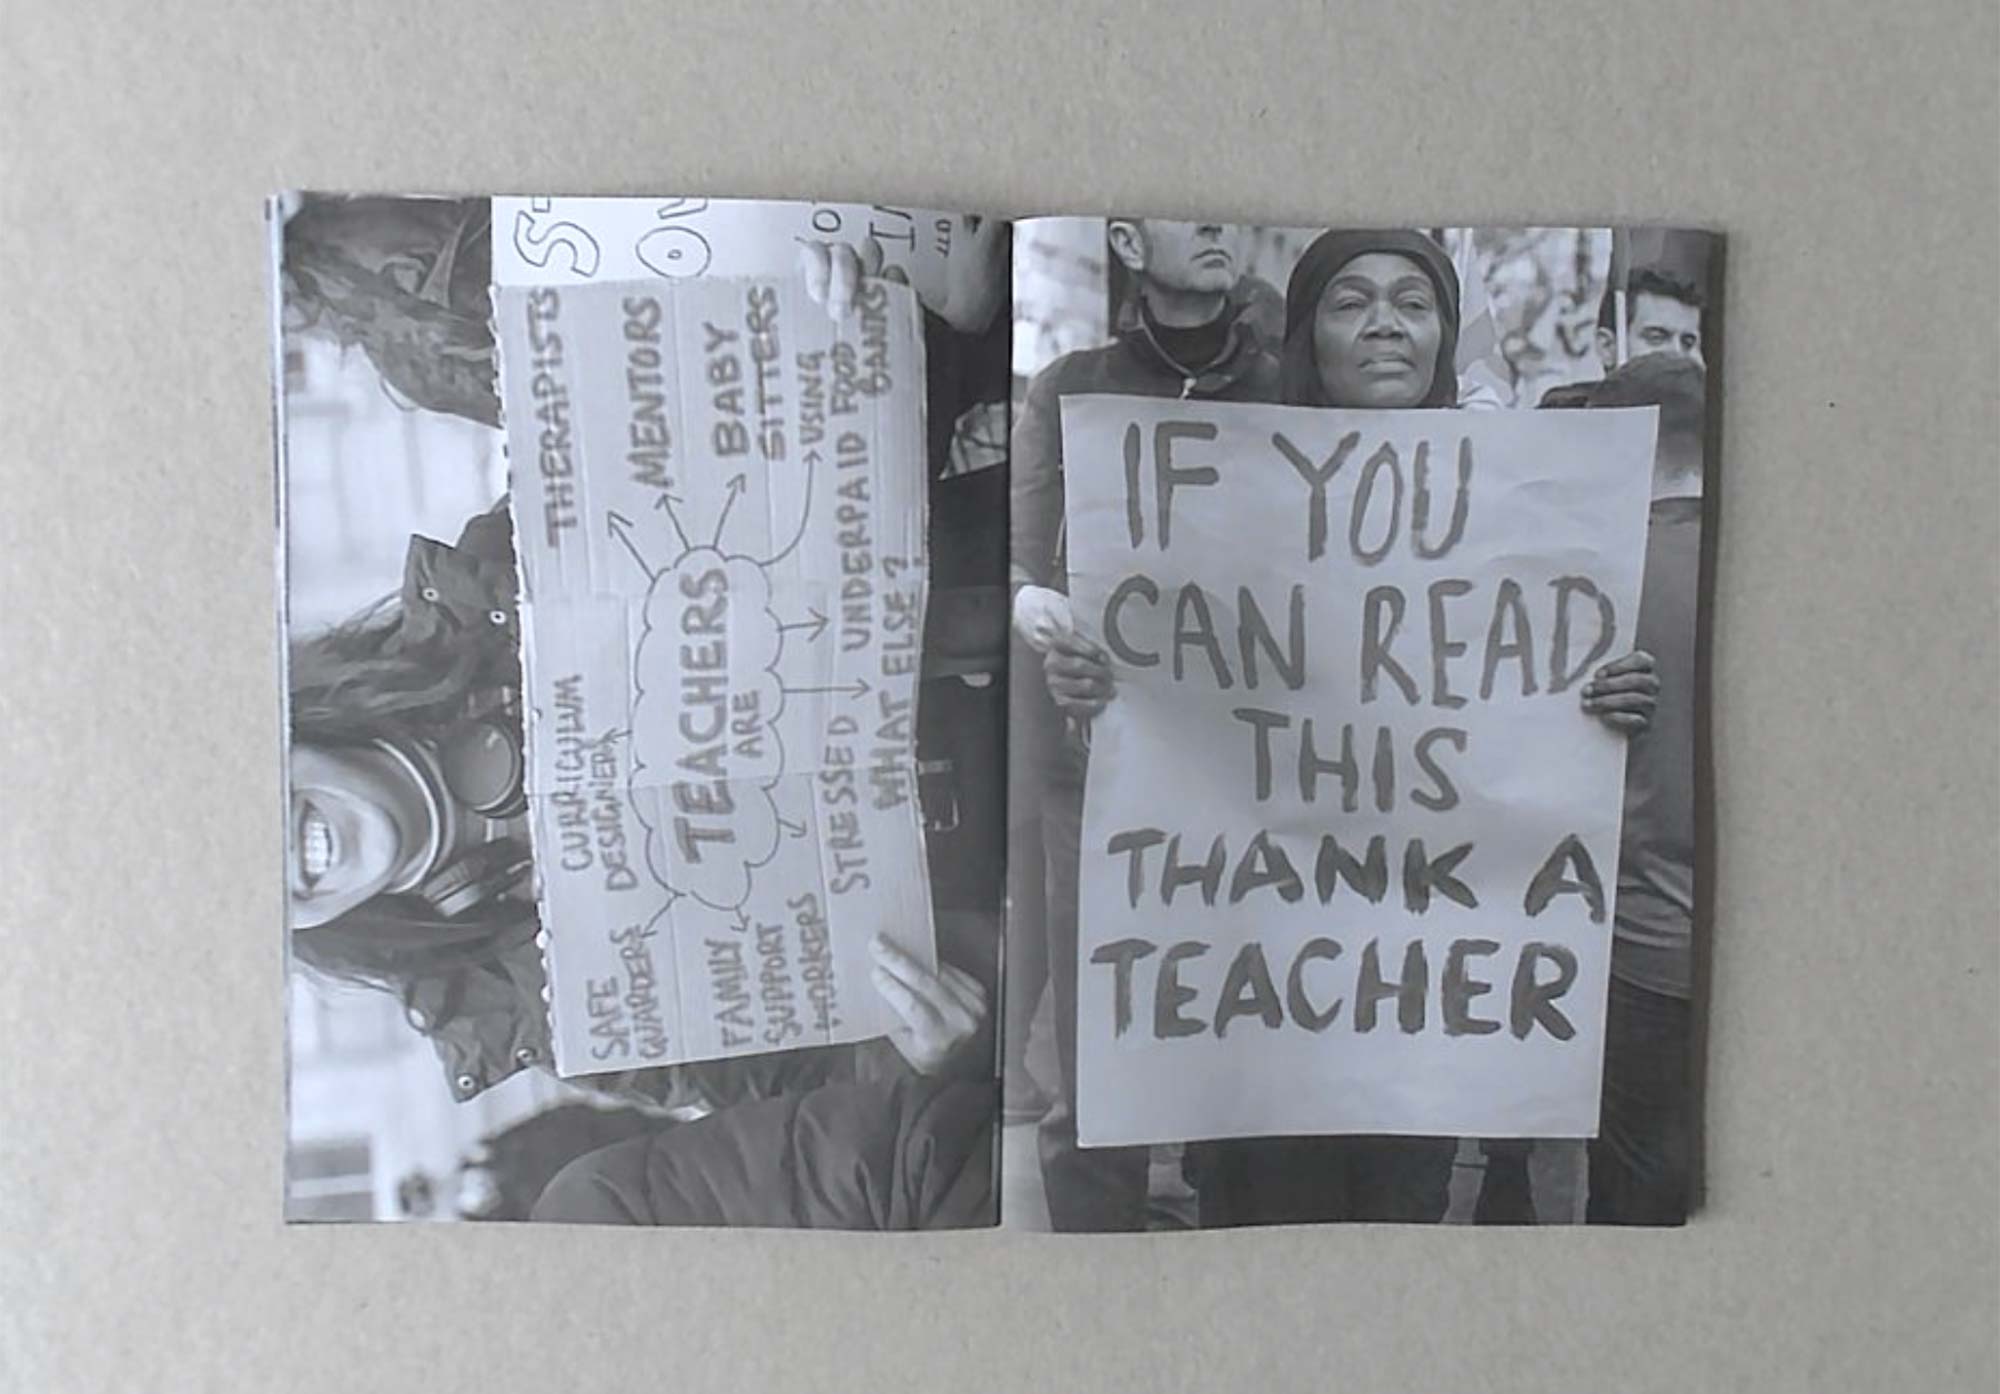 THERAPISTS
MENTORS
BABY
SITTERS
USING
FOOD
BANKS
UNDERPAID
STRESSED
WHAT ELSE?
TEACHERS
ARE
CURRICULUM
DESIGNER
SAFE
GUARDERS
FAMILY
SUPPORT
WORKERS
IF YOU
CAN READ
THIS
THANK A
TEACHER